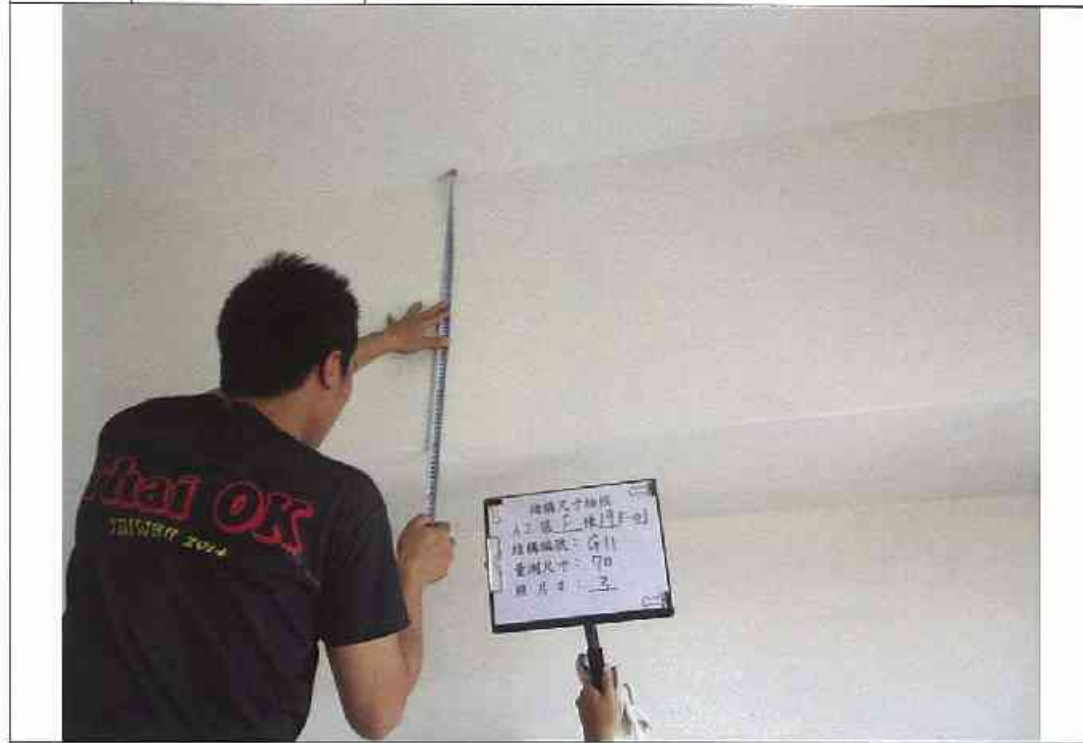 Thai OK
TAIWAN 2014
結構尺寸抽核
A3區 F 棟 19F-01
結構編號：G11
量測尺寸：70
照片#：3